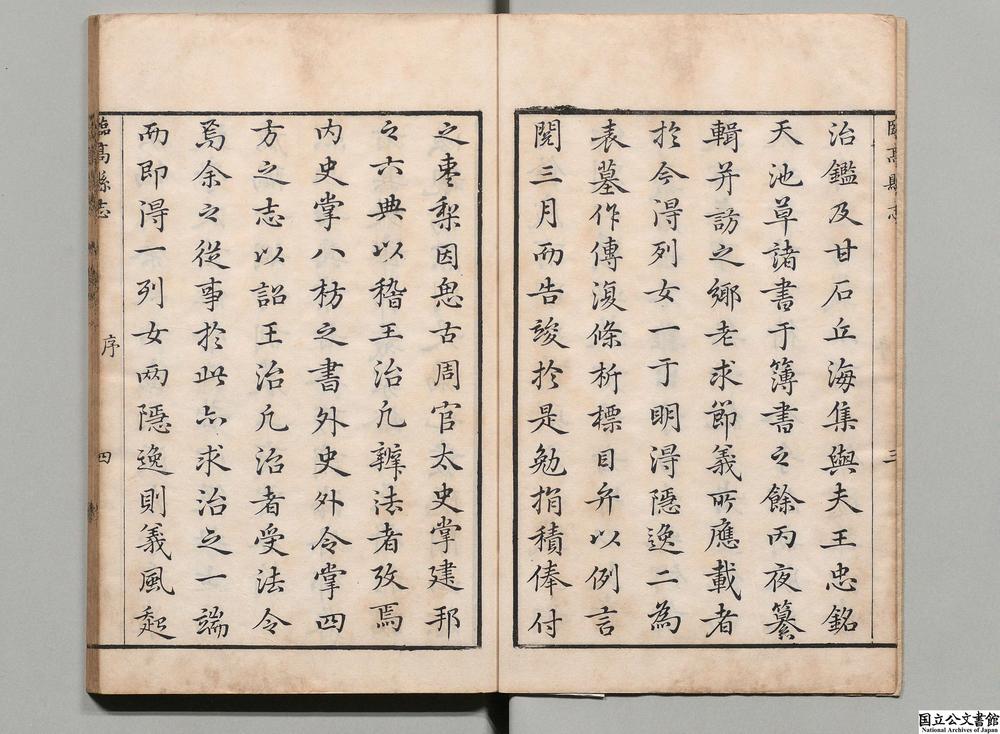 臨高縣志
三
治鑑及甘石丘海集與夫王忠銘
天池草諸書于簿書之餘丙夜纂
輯并訪之鄉老求節義所應載者
於今得列女一于明得隱逸二為
表墓作傳復條析標目弁以例言
閱三月而告竣於是勉捐積俸付
之棗梨因思古周官太史掌建邦
之六典以稽王治凡辨法者攷焉
內史掌八枋之書外史外令掌四
方之志以詔王治凡治者受法令
焉余之從事於此亦求治之一端
而即得一列女兩隱逸則義風起
臨高縣志
序
四
国立公文書館
National Archives of Japan